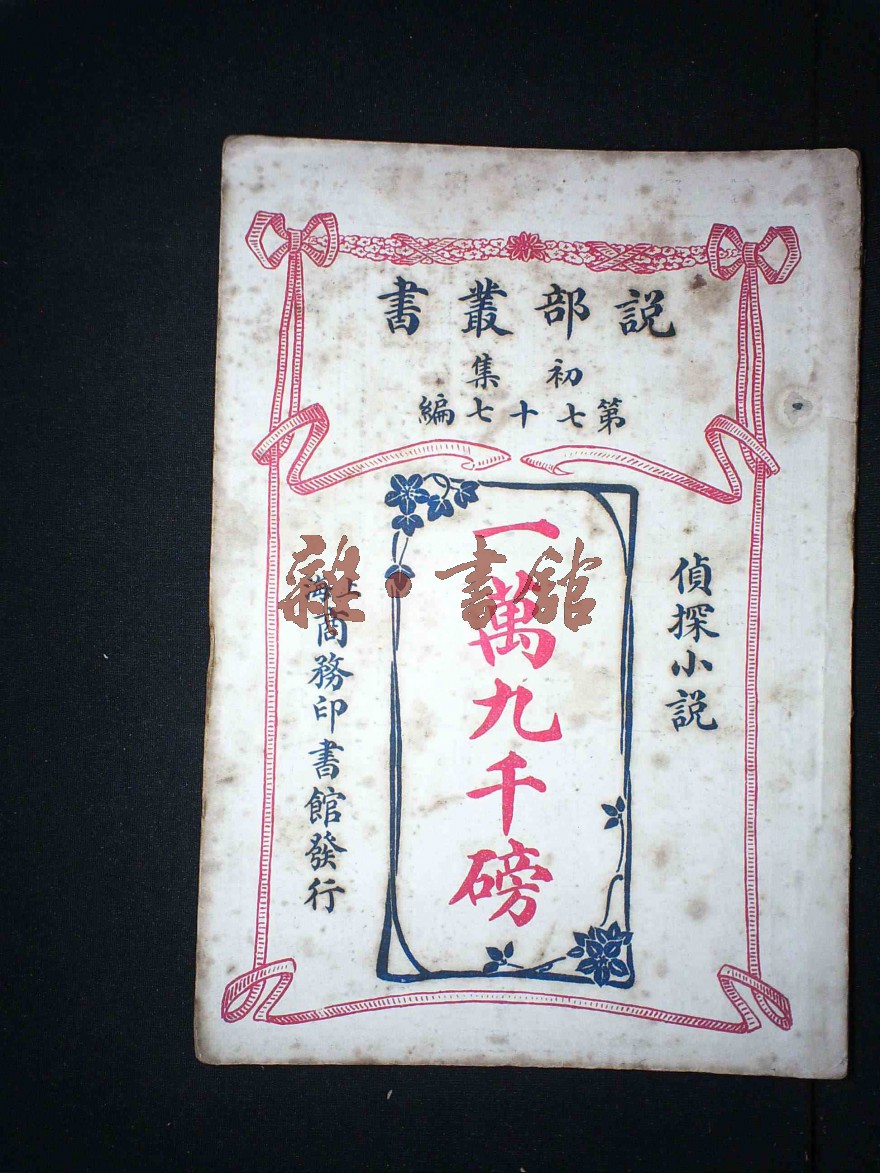 說部叢書
初集
第七十七編
偵探小說
一萬九千磅
上海商務印書館發行
雜·書館